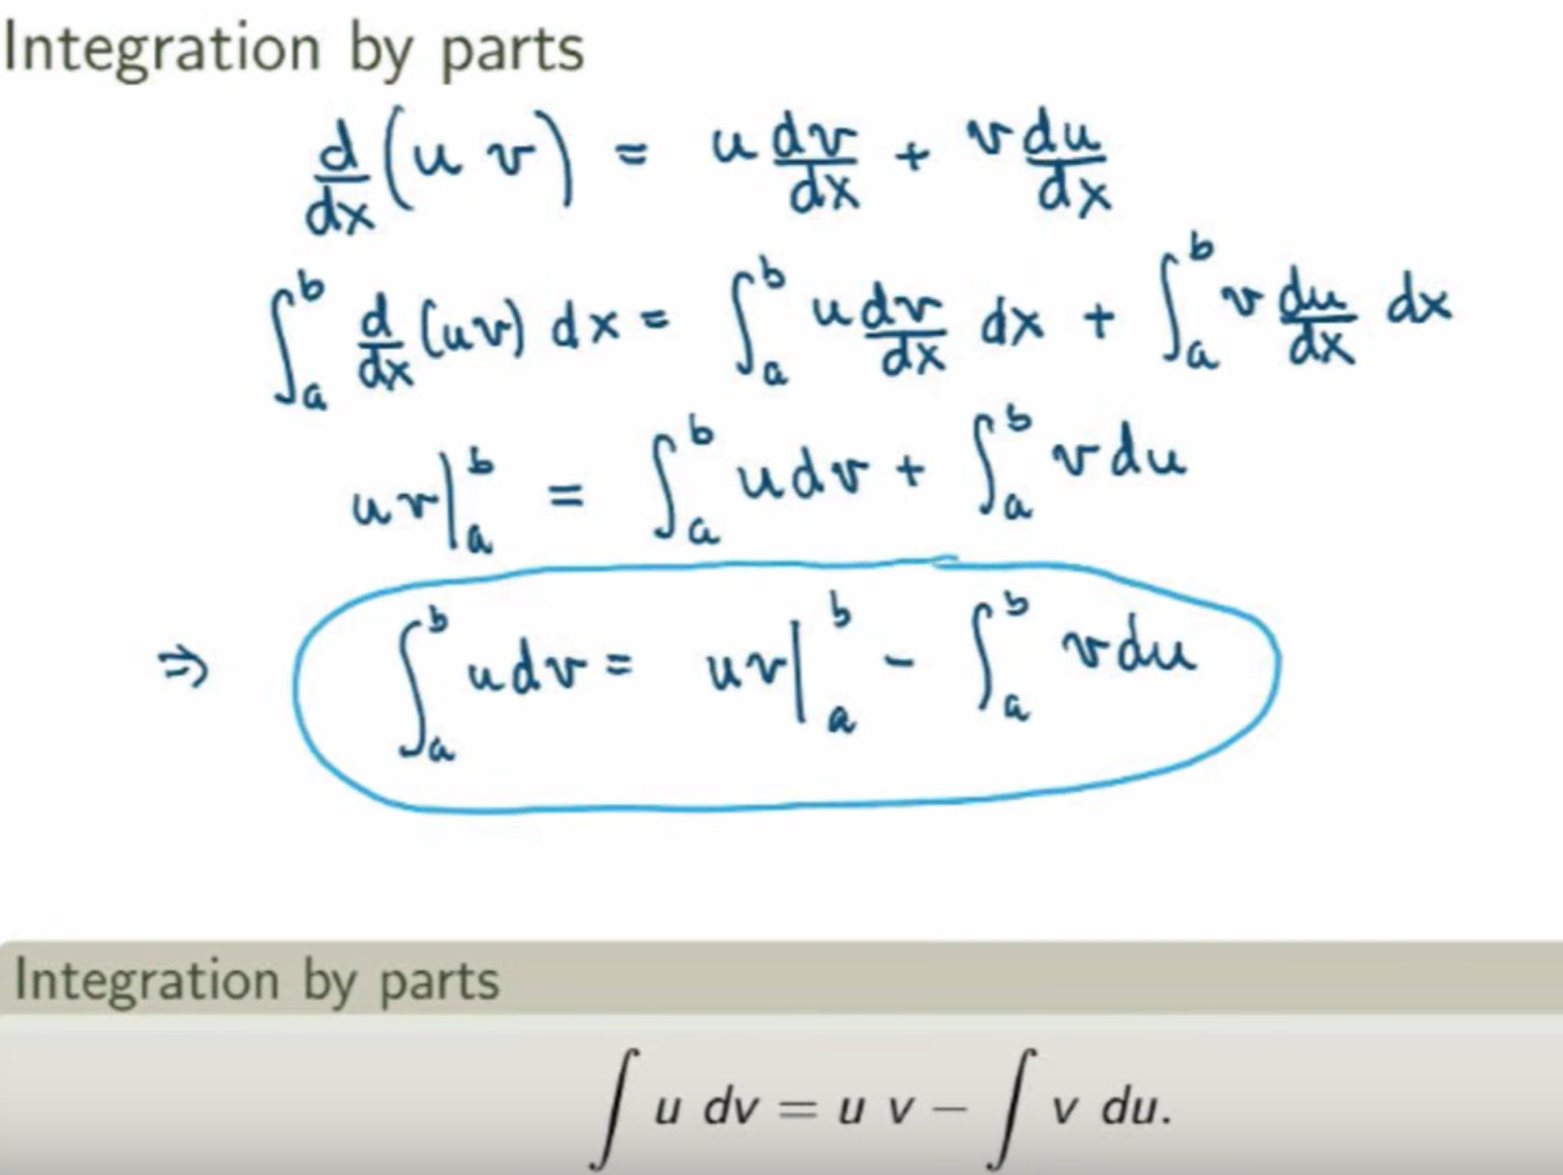 Integration by parts
d/dx (u v) = u dv/dx + v du/dx
∫_a^b d/dx (uv) dx = ∫_a^b u dv/dx dx + ∫_a^b v du/dx dx
uv|_a^b = ∫_a^b u dv + ∫_a^b v du
⇒ ∫_a^b u dv = uv|_a^b - ∫_a^b v du
Integration by parts
∫ u dv = u v − ∫ v du.